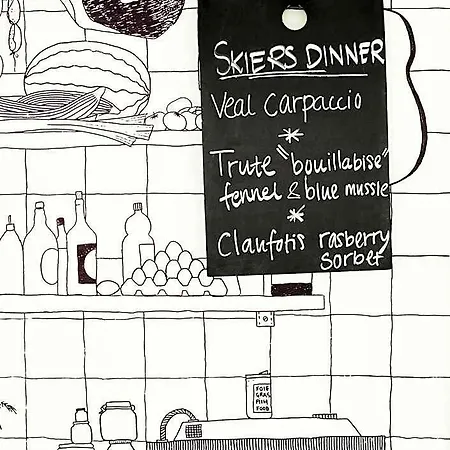 SKIERS DINNER
Veal Carpaccio
*
Trute "bouillabise"
fennel & blue mussle
*
Claufotis rasberry
sorbet
FOIE
GRAS
MIM
FOOD